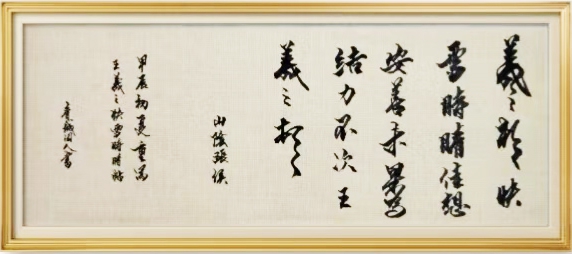 羲之頓首快
雪時晴佳想
安善未果為
結力不次王
羲之頓首
山陰張侯
甲辰初夏重
王羲之快雪時晴帖
人書